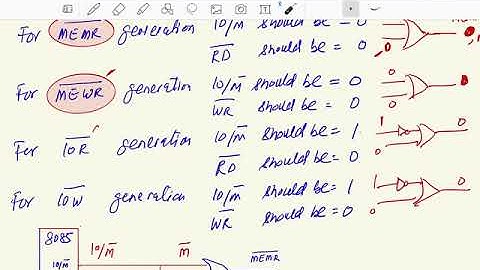 For M̅E̅M̅R̅ generation IO/M̅ should be = 0
R̅D̅ should be = 0
0
For M̅E̅W̅R̅ generation IO/M̅ should be = 0
W̅R̅ should be = 0
0
0
For I̅O̅R̅ generation IO/M̅ should be = 1
R̅D̅ should be = 0
1
0
0
For I̅O̅W̅ generation IO/M̅ should be = 1
W̅R̅ should be = 0
1
0
0
8085
IO/M̅ M̅ M̅E̅M̅R̅
IO/M̅